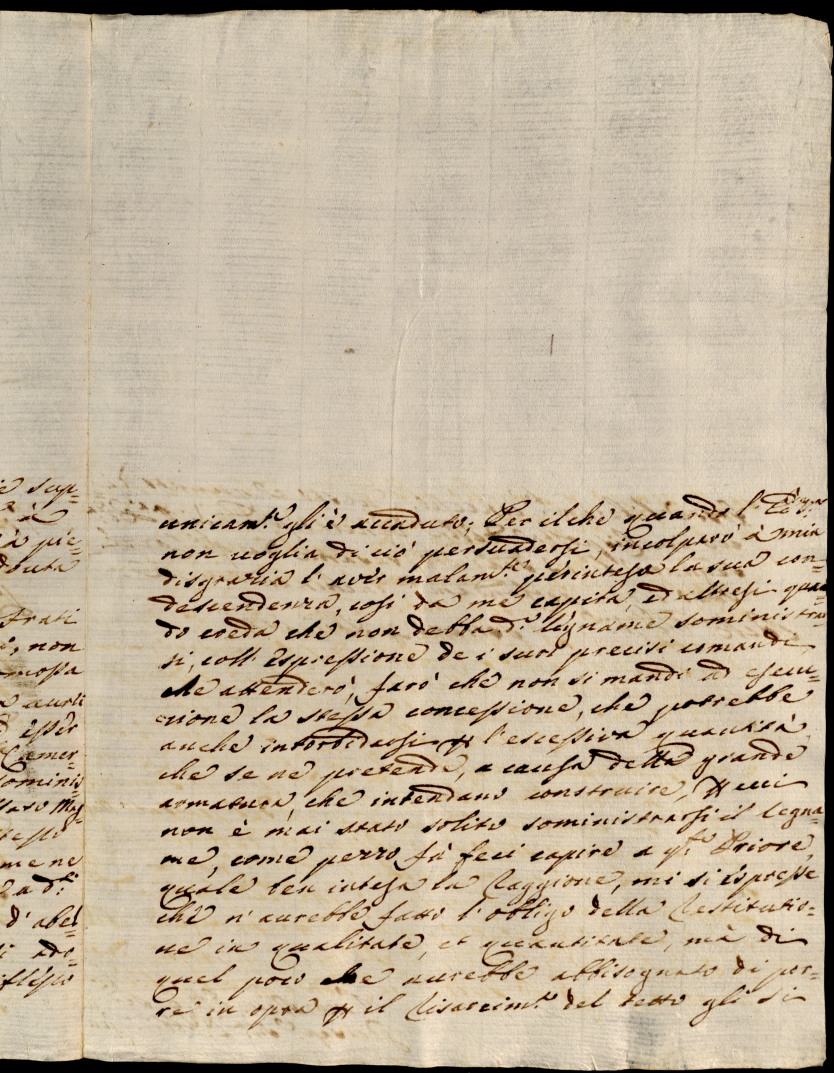 e sup=
à
à pre=
douta
Frati
i, non
omossa
a aurli
d' esser
Camer=
sominis=
stato Mag=
tesso
me ne
a d.ᵒ
d' abel=
i ado=
iflesso
unicam.ᵗᵉ gli è accaduto; Per il che quando l'
non uoglia di ciò persuadersi, incolparò à mia
disgrazia l' auer malam.ᵗᵉ perintesa la sua con=
descendenza, così da me capita, ed altresì quan=
do creda che non debba d.ᵒ legname soministrar=
si, coll' espressione de i suoi precisi comandi
che attenderò, farò che non si mandi ad esecu=
zione la stessa concessione, che potrebbe
anche intorbidarsi p l' escessiva quantità
che se ne pretende, a causa della grande
armatura, che intendano construire, p cui
non è mai stato solito soministrarsi il legna=
me, come pezzo fà feci capire a q.ᵗᵒ Priore,
quale ben intesa la Raggione, mi si espresse
che n' aurebbe fatto l' obligo della Restitutio=
ne in qualitate, et quantitate, mà di
quel poco che aurebbe abbisognato di por=
re in opra p il Risarcim.ᵗᵒ del tetto gli si